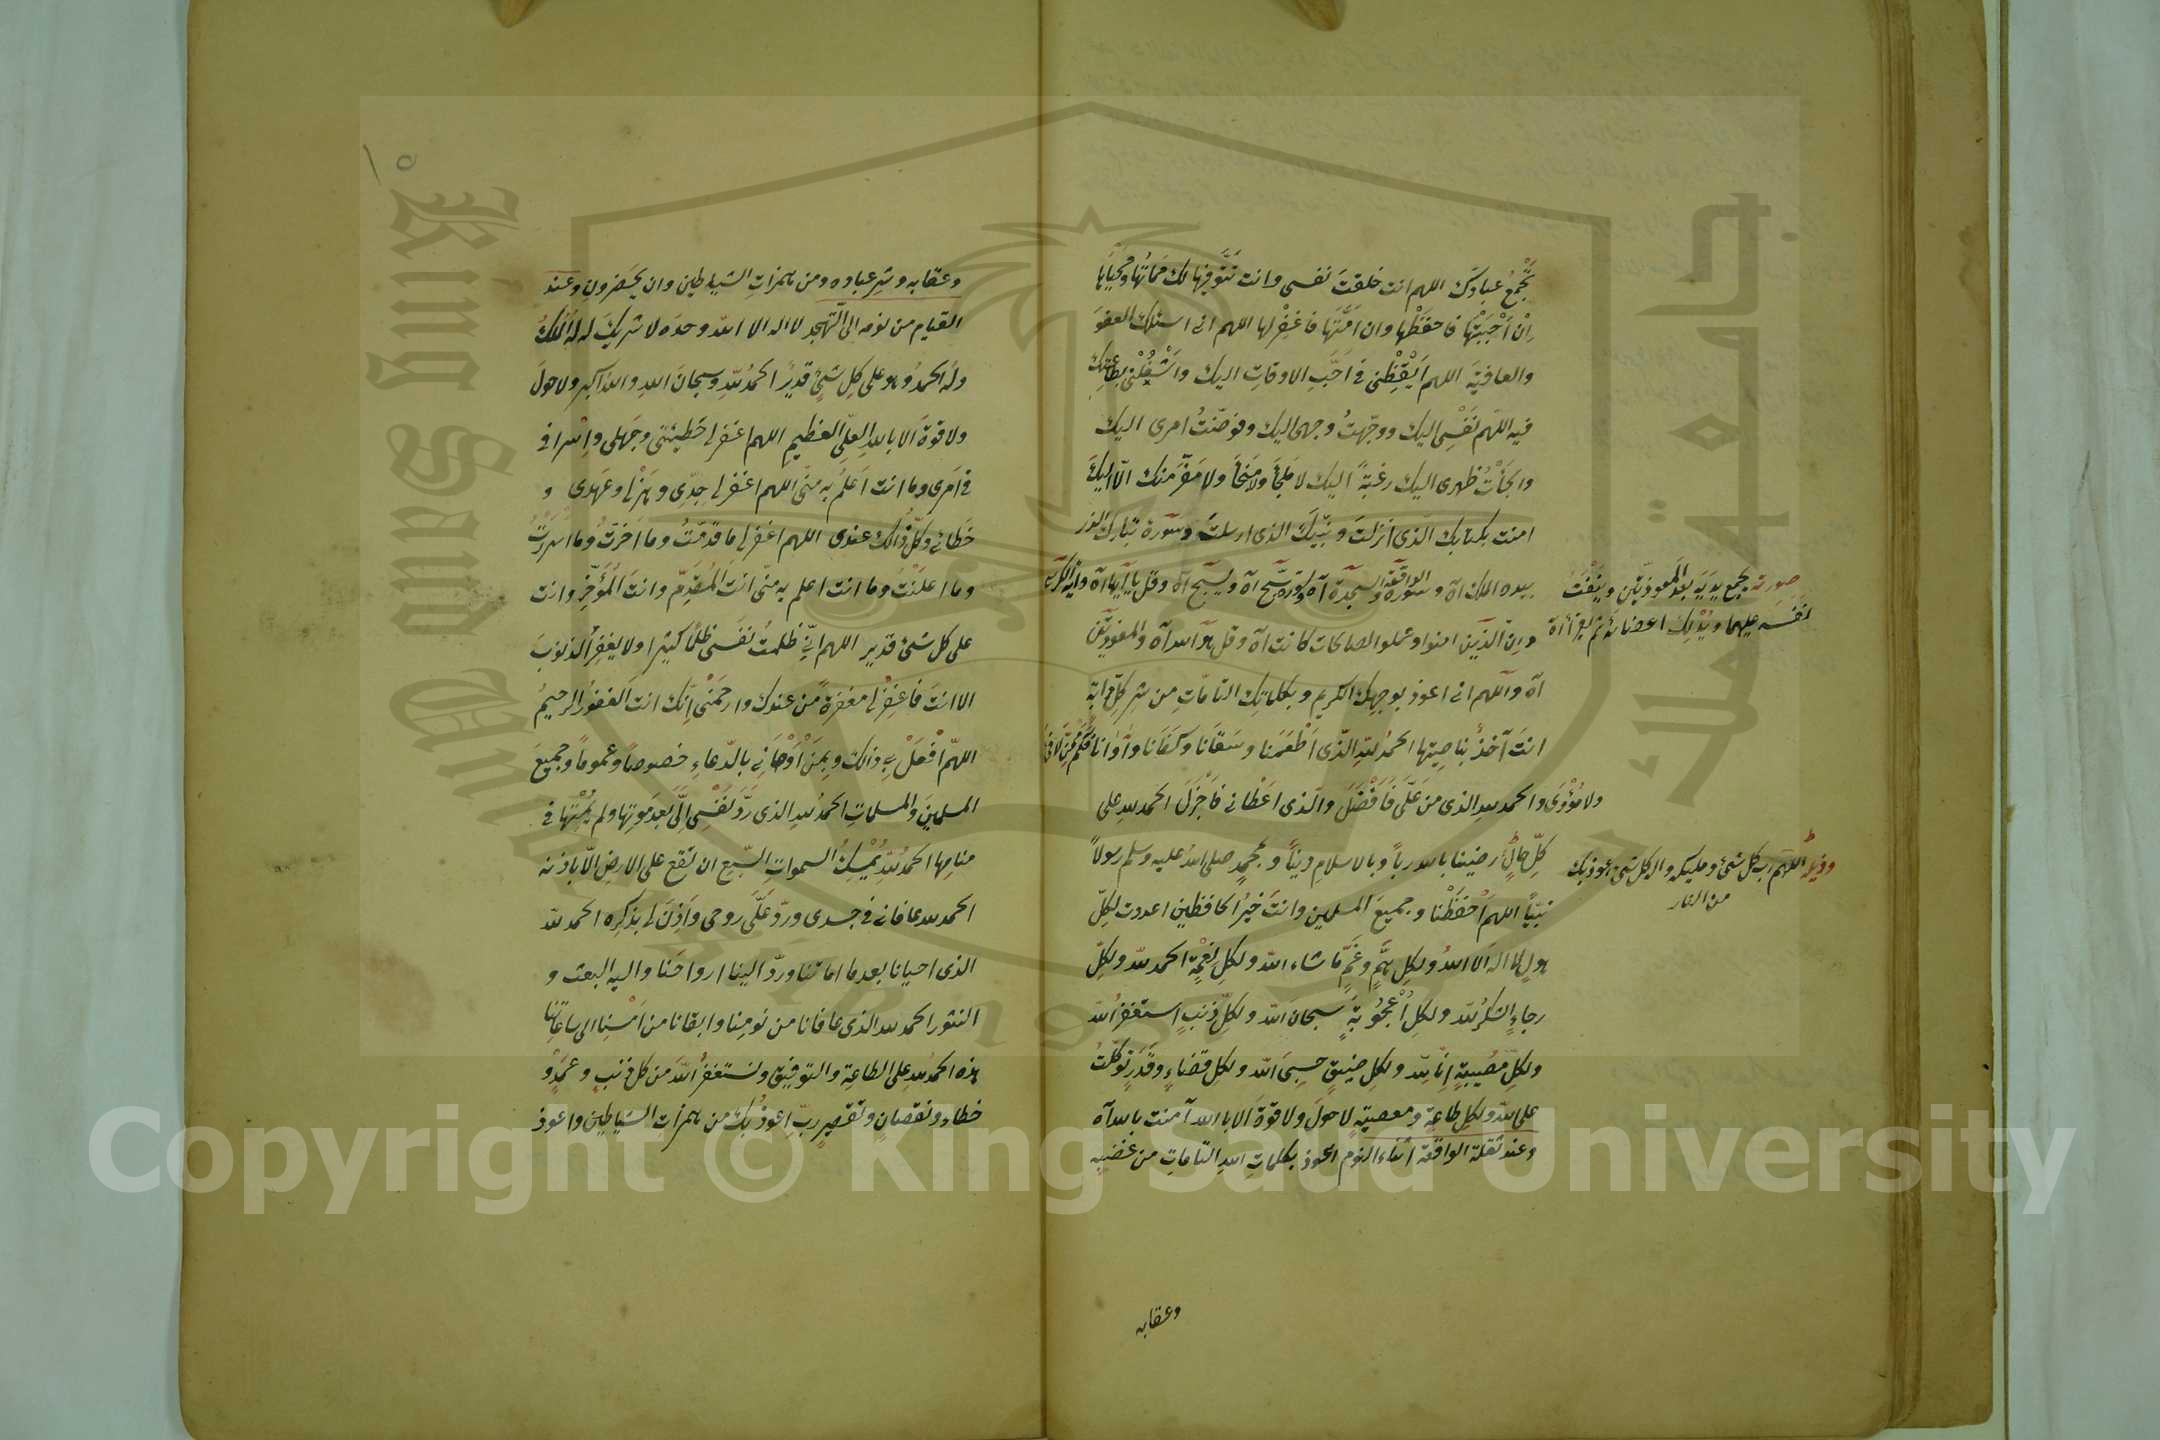 تَجْمَعُ عبادَك اللهم انت خلقتَ نفسى وانت تَتَوفيها لك مَمَاتُها ومَحْيَاهَا
اِنْ اَحْيَيْتَهَا فاحفَظْها وان اَمَتَّهَا فاغفِرْ لها اللهم انى اسئلك العفوَ
والعافيةَ اللهم اَيْقِظْنى فى اَحَبِّ الاوقاتِ اليك واشْغُلْنى بطاعتِك
فيه اللهم نَفْسِى اليك ووجّهتُ وجهى اليك وفوضتُ امرى اليك
والجَأْتُ ظهرى اليك رغبةً اليك لا مَلْجَأَ ولا مَنْجَا ولا مَفَرَّ منك الّا اليك
امنت بكتابك الّذى انزلتَ ونبيّك الذى ارسلتَ وسورة تبارك الذى
بيده الملك آه وسورة الواقعة والسجدة آه وسورة سبّح آه ويسبّح آه وقل يا ايها آه وآية الكرسى
وانّ الّذين امنوا وعملوا الصالحات كانت آه وقل هو الله آه والمعوذتين
صورته يجمع يديه بعد المعوذتين وينفث
نفسه عليهما ويدلك اعضائه ثم يقرأ آه
آه واللهم انى اعوذ بوجهك الكريم وبكلماتِك التامّاتِ من شر كلّ دابةٍ
انتَ آخذٌ بناصيتها الحمدُ للهِ الّذى اَطْعَمَنا وسَقَانا وكَفَانا وآوانا فكم ممّن لا كافىَ
ولا مُؤْوِىَ والحمد للهِ الذى مَنّ علَىَّ فَاَفْضَلَ والّذى اعَطْانى فَاَجْزَلَ الحمد لله على
كلّ حالٍ رضينا بالله رباً وبالاسلام ديناً وبمحمدٍ صلى الله عليه وسلم رسولاً
وزيد اللهم رب كل شئ ومليكه واله كل شئ اعوذ بك
من النار
نبيّاً اللهم احْفَظْنا وجميعَ المسلمين وانتَ خيرُ الحافظين اعددت لكلّ
هولٍ لا اله الّا اللهُ ولكلِ همٍّ وغمٍّ ما شاء الله ولكلِ نِعْمةٍ الحمد لله ولكلِّ
رجاءٍ الشكرُ لله ولكلِ اُعْجُوبَةٍ سبحانَ الله ولكلّ ذنبٍ استغفرُ الله
ولكلِّ مُصيبةٍ اِنّا لله ولكلِ ضيقٍ حسبىَ الله ولكل قضاءٍ وقَدَرٍ توكّلتُ
على الله ولكل طاعةٍ ومعصيةٍ لا حولَ ولا قوةَ الا بالله آمنت بالله آه
وعند ثقلة الواقعة اثناء النوم اعوذ بكلماتِ اللهِ التاماتِ من غضبِه
وعقابه
وعقابه وشرِ عباده ومن همزاتِ الشياطين وان يحَضرونِ وعند
القيام من نومه الى التهجد لا اله الا الله وحدَه لا شريكَ له له الملكُ
وله الحمدُ وهو على كلِ شئٍ قديرٌ الحمدُ للهِ وسبحانَ اللهِ واللهُ اكبر ولا حولَ
ولا قوةَ الا بالله العلِىِّ العظيمِ اللهم اغفر لى خطيئتى وجَهلى واِسْرافى
فى امَرى وما انت اعلَمُ به منّى اللهم اغفر لى جِدّى وهَزْلى وعَمدى و
خَطائى وكلُّ ذالك عندى اللهم اغفر لى ما قدّمتُ وما اخرّتُ وما اسررْتُ
وما اعلنْتُ وما انت اعلم به منّى انتَ المُقَدِّمُ وانتَ المُؤَخِّرُ وانت
على كل شئ قدير اللهم انّى ظلمتُ نفسى ظلماً كثيرا ولا يغفِرُ الذنوبَ
الا انتَ فاغفِرْ لى مغفرةً من عندك وارحمَنْى انّك انت الغفورُ الرحيمُ
اللهم افْعَلْ بى ذالك وبِمَنْ اَوْصَانى بالدّعاءِ خصوصاً وعموماً وجميعَ
المسلمينَ والمسلماتِ الحمدُ للهِ الذى رَدَّ نَفْسِى اِلَىَّ بعد موتِها ولم يُمِتْها فى
منامِها الحمدُ للهِ يُمْسِكُ السمواتِ السّبعِ ان تقع على الارضِ الّا باذنه
الحمد لله عافانى فى جسدى وردّ علَىَّ روحى واَذِنَ لى بذكِره الحمد لله
الذى احيانا بعد ما اماتنا وردّ الينا ارواحَنا واليه البعث و
النشور الحمد لله الذى عافانا من نومِنا وابقانا من اَمْسِنا الى ساعتِنا
هذه الحمدُ للهِ على الطاعةِ والتوفيقِ ونستغفرُ اللهَ من كل ذنبٍ وعَمْدٍ و
خطاءٍ ونقصانٍ وتقصيرٍ ربِّ اعوذُ بك من همزاتِ الشياطين واعوذ
Copyright © King Saud University